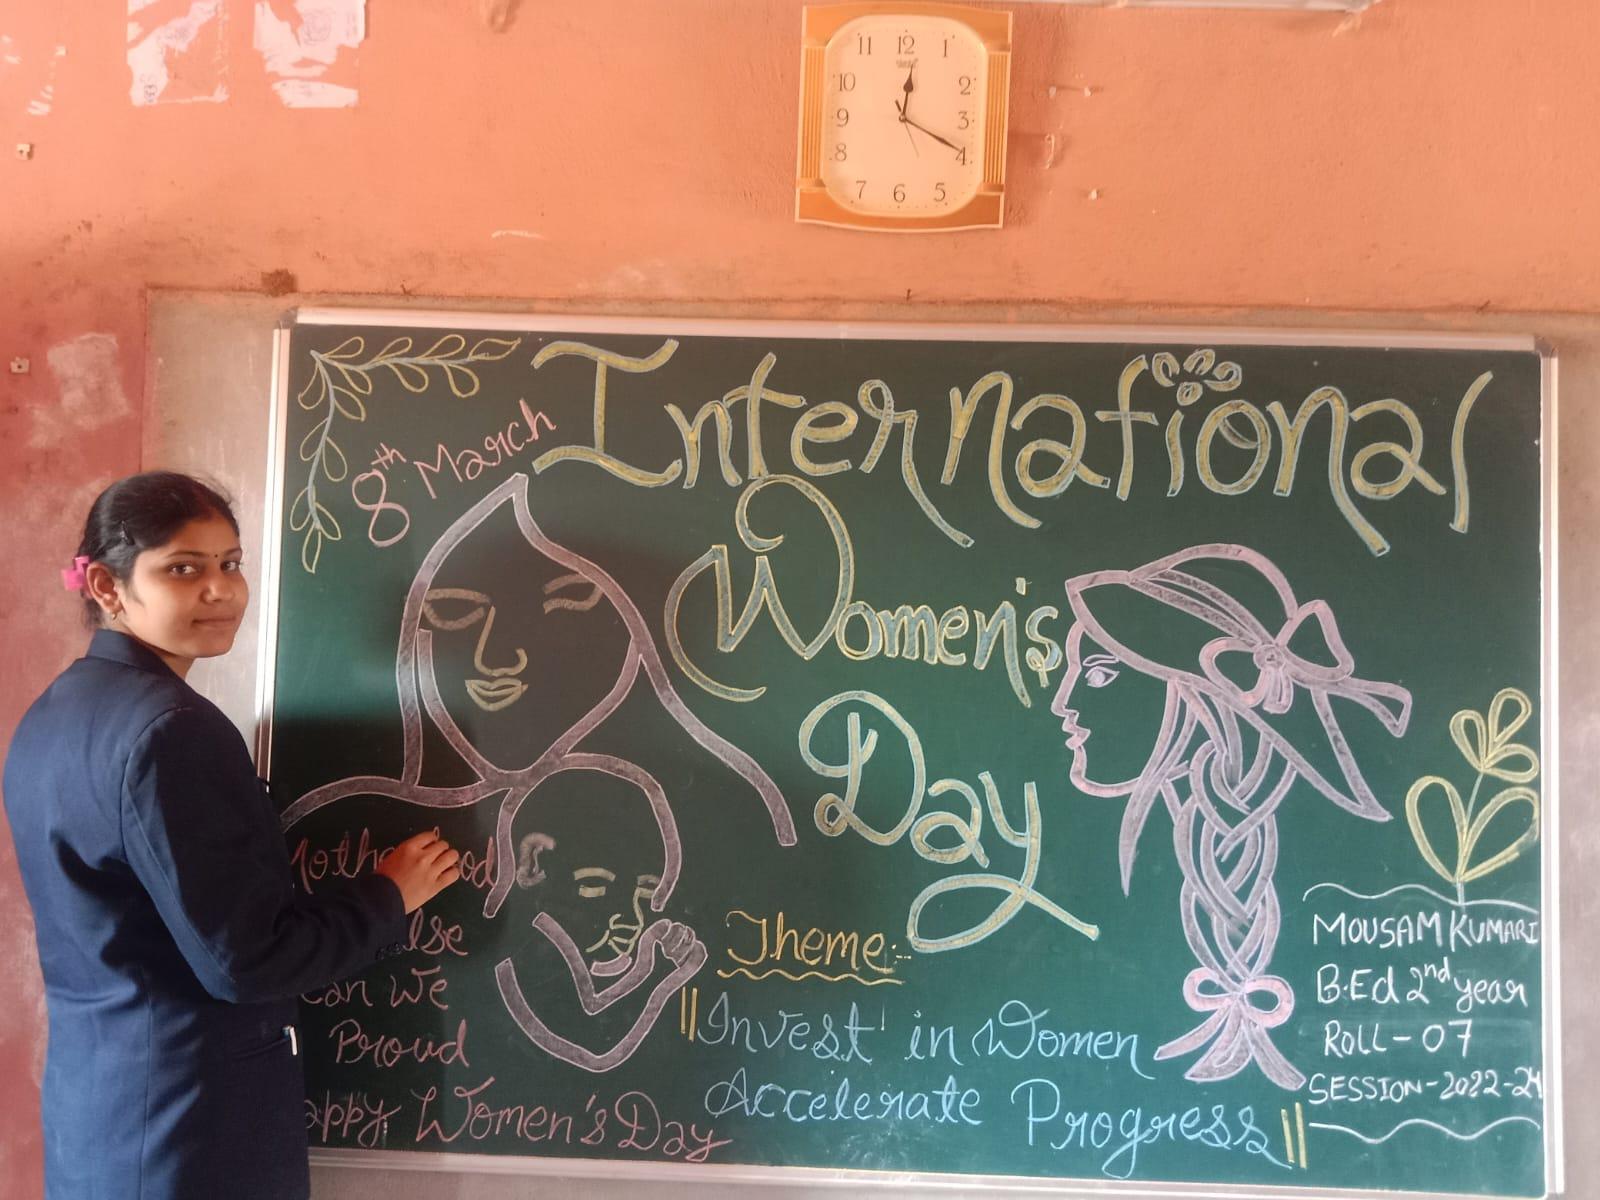 11 12 1
10 2
9 3
8 4
7 6 5
8th March
International
Women's
Day
Can We
Proud
Happy Women's Day
Theme:-
"Invest in Women
Accelerate Progress"
MOUSAM KUMARI
B.Ed 2nd year
ROLL - 07
SESSION - 2022-24